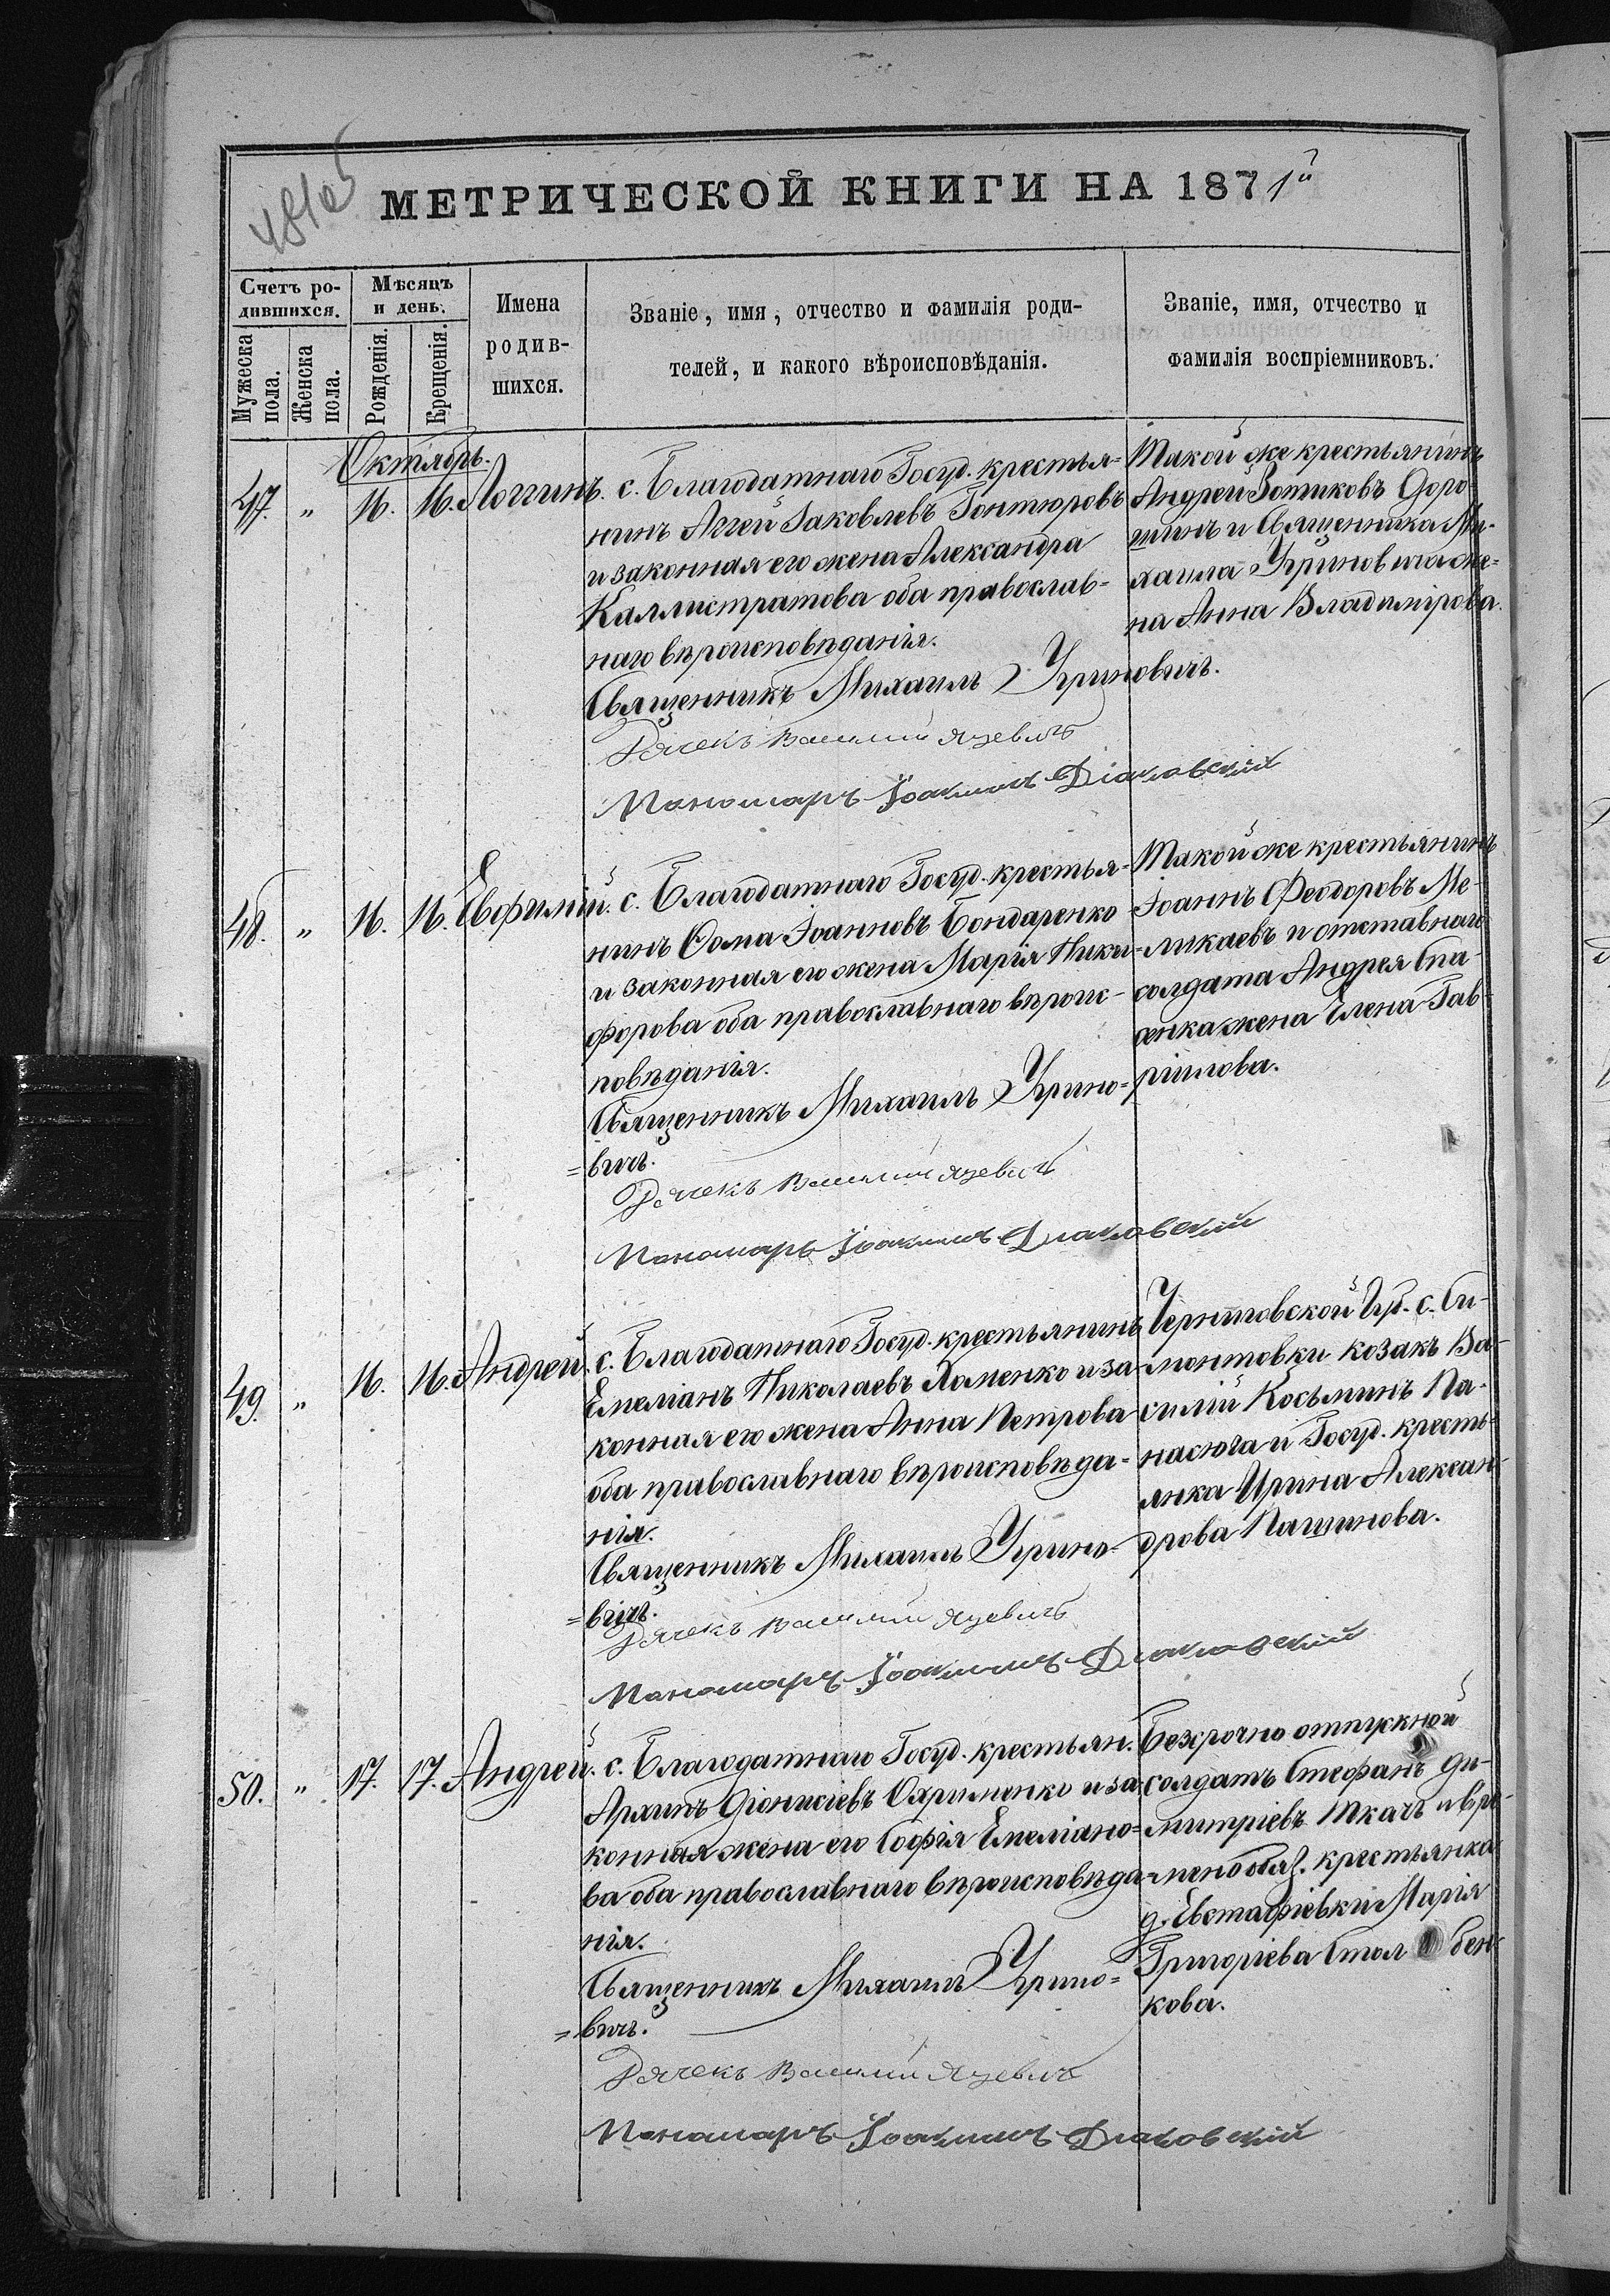 МЕТРИЧЕСКОЙ КНИГИ НА 1871й
Счетъ ро-
дившихся.
Мужеска
пола.
Женска
пола.
Мѣсяцъ
и день.
Рожденія.
Крещенія.
Имена
родив-
шихся.
Званіе, имя, отчество и фамилія роди-
телей, и какого вѣроисповѣданія.
Званіе, имя, отчество и
фамилія воспріемниковъ.
Октябрь.
47. " 16. 16. Логгинъ.
с. Благодатнаго Госуд. крестья-
нинъ Аггей Іаковлевъ Гонтюровъ
и законная его жена Александра
Каллистратова оба православ-
наго вѣроисповѣданія.
Священникъ Михаилъ Угриновичъ.
Дячекъ Василий Яцевичъ
Пономарь Іоакимъ Діаковскій
Такой же крестьянинъ
Андрей Зотиковъ Доро-
шинъ и Священника Ми-
хаила Угриновича же-
на Анна Владимірова.
48. " 16. 16. Евфимій.
с. Благодатнаго Госуд. крестья-
нинъ Ѳома Іоанновъ Бондаренко
и законная его жена Марія Ники-
форова оба православнаго вѣроис-
повѣданія.
Священникъ Михаилъ Угрино-
=вичъ.
Дячекъ Василий Яцевичъ
Пономарь Іоакимъ Діаковский
Такой же крестьянинъ
Іоаннъ Феодоровъ Ме-
ликаевъ и отставнаго
солдата Андрея Спа-
жена Елена Гав-
ріилова.
49. " 16. 16. Андрей.
с. Благодатнаго Госуд. крестьянинъ
Емеліанъ Николаевъ Хоменко и за-
конная его жена Анна Петрова
оба православнаго вѣроисповѣда-
нія.
Священникъ Михаилъ Угрино-
=вичъ.
Дячекъ Василий Яцевичъ
Пономарь Іоакимъ Діаковский
Черниговской Губ. с. Си-
монтовки козакъ Ва-
силій Косьминъ Па-
насюга и Госуд. кресть-
янка Ирина Алексан-
дрова Пашинова.
50. " 17. 17. Андрей.
с. Благодатнаго Госуд. крестьян.
Архипъ Діонисіевъ Охрименко и за-
конная жена его Софія Емеліано-
ва оба православнаго вѣроисповѣда-
нія.
Священникъ Михаилъ Угрино-
=вичъ.
Дячекъ Василий Яцевичъ
Пономарь Іоакимъ Діаковский
Безсрочно отпускной
солдатъ Стефанъ Ди-
митріевъ Ткачъ и вре-
менобяз. крестьянка
д. Евстафіевки Марія
Григоріева Стол бен-
кова.